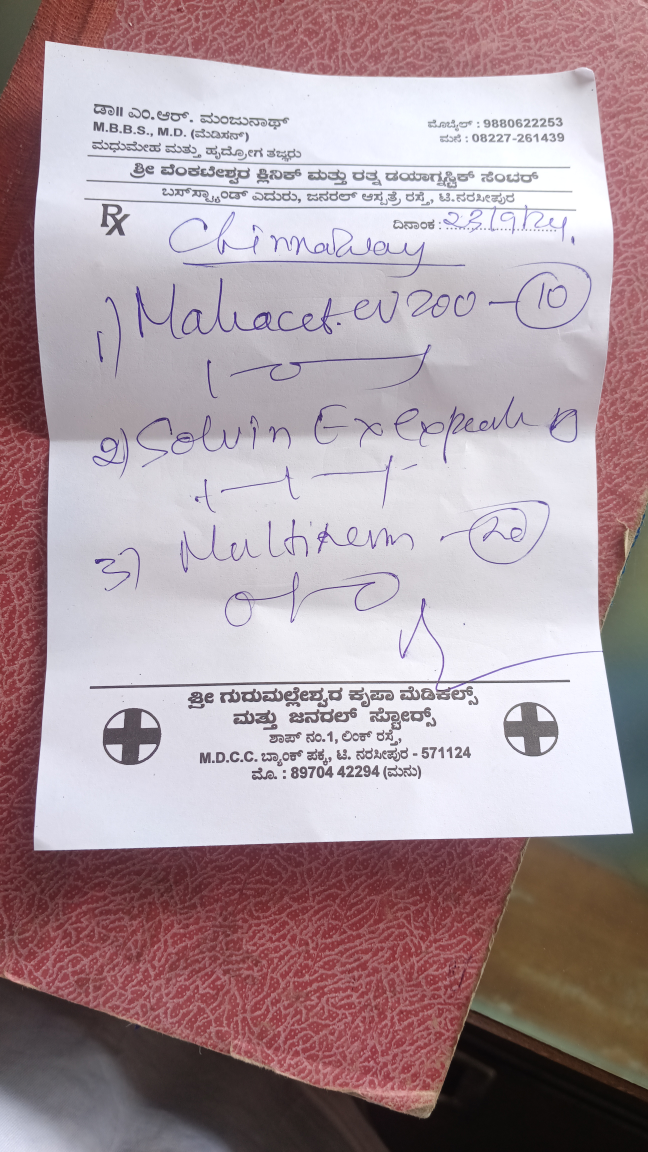 ಡಾ॥ ಎಂ.ಆರ್. ಮಂಜುನಾಥ್
M.B.B.S., M.D. (ಮೆಡಿಸನ್)
ಮಧುಮೇಹ ಮತ್ತು ಹೃದ್ರೋಗ ತಜ್ಞರು
ಮೊಬೈಲ್ : 9880622253
ಮನೆ : 08227-261439
ಶ್ರೀ ವೆಂಕಟೇಶ್ವರ ಕ್ಲಿನಿಕ್ ಮತ್ತು ರತ್ನ ಡಯಾಗ್ನಸ್ಟಿಕ್ ಸೆಂಟರ್
ಬಸ್‌ಸ್ಟ್ಯಾಂಡ್ ಎದುರು, ಜನರಲ್ ಆಸ್ಪತ್ರೆ ರಸ್ತೆ, ಟಿ.ನರಸೀಪುರ
Rx
ದಿನಾಂಕ : 23/9/24.
1) Mahacef. CV 200 - 10
1 - 0 - 1
2) Solvin Ex
1 - 1 - 1
3) - 20
0 - 1 - 0
ಶ್ರೀ ಗುರುಮಲ್ಲೇಶ್ವರ ಕೃಪಾ ಮೆಡಿಕಲ್ಸ್
ಮತ್ತು ಜನರಲ್ ಸ್ಟೋರ್ಸ್
ಶಾಪ್ ನಂ.1, ಲಿಂಕ್ ರಸ್ತೆ,
M.D.C.C. ಬ್ಯಾಂಕ್ ಪಕ್ಕ, ಟಿ. ನರಸೀಪುರ - 571124
ಮೊ. : 89704 42294 (ಮನು)